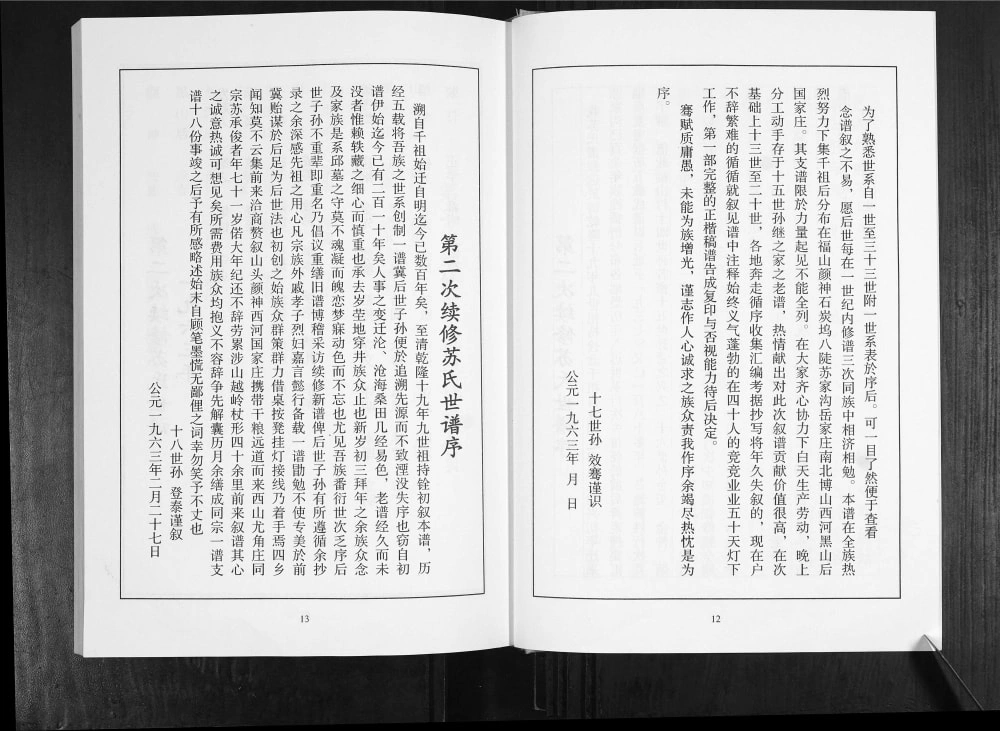 为了熟悉世系自一世至三十三世附一世系表於序后。可一目了然便于查看
念谱叙之不易，愿后世每在一世纪内修谱三次同族中相济相勉。本谱在全族热
烈努力下集千祖后分布在福山颜神石炭坞八陡苏家沟岳家庄南北博山西河黑山后
国家庄。其支谱限於力量起见不能全列。在大家齐心协力下白天生产劳动，晚上
分工动手存于十五世孙继之家之老谱，热情献出对此次叙谱贡献价值很高，在次
基础上十三世至二十世，各地奔走循序收集汇编考据抄写将年久失叙的，现在户
不辞繁难的循循就叙见谱中注释始终义气蓬勃的在四十人的竞竞业业五十天灯下
工作，第一部完整的正楷稿谱告成复印与否视能力待后决定。
骞赋质庸愚，未能为族增光，谨志作人心诚求之族众责我作序余竭尽热忱是为
序。
十七世孙 效骞谨识
公元一九六三年 月 日
12
第二次续修苏氏世谱序
溯自千祖始迁自明迄今已数百年矣，至清乾隆十九年九世祖持铨初叙本谱，历
经五载将吾族之世系创制一谱冀后世子孙便於追溯先源而不致湮没失序也窃自初
谱伊始迄今已有二百一十年矣人事之变迁沦、沧海桑田几经易色，老谱经久而未
没者惟赖轶藏之细心而慎重也承去岁茔地穿井族众止也新岁初三拜年之余族众念
及家族是系邱墓之守莫不魂凝而魄恋梦寐动色而不忘也尤见吾族番衍世次乏序后
世子孙不重辈即重名乃倡议重缮旧谱博稽采访续修新谱俾后世子孙有所遵循余抄
录之余深感先祖之用心凡宗族外戚孝子烈妇嘉言懿行备载一谱勖勉不使专美於前
冀贻谋於后足为后世法也初创之始族众群策群力借桌按凳挂灯接线乃着手焉四乡
闻知莫不云集前来洽商赘叙山头颜神西河国家庄携带干粮远道而来西山尤角庄同
宗苏承俊者年七十一岁偌大年纪还不辞劳累涉山越岭杖形四十余里前来叙谱其心
之诚意热诚可想见矣所需费用族众均抱义不容辞争先解囊历月余缮成同宗一谱支
谱十八份事竣之后予有所感略述始末自顾笔墨慌无鄙俚之词幸勿笑予不丈也
十八世孙 登泰谨叙
公元一九六三年二月二十七日
13